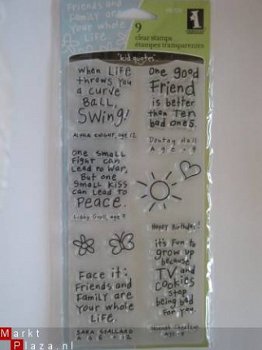 Friends and
Family are
your whole
Life.
9
clear stamps
estampes transparentes
"kid quotes"
when Life
throws you
a curve
Ball,
Swing!
ALPHA KNIGHT, age 12
One good
Friend
is better
than Ten
bad ones.
Age 9
One small
Fight can
Lead to War,
But one
Small Kiss
can Lead to
Peace.
age 9
Happy Birthday!
it's fun to
grow up
because
TV and
cookies
stop
being bad
for you
Face it:
Friends and
Family are
Your whole
Life.
SARA
AGE 12
Hannah
Markt
Plaza.nl